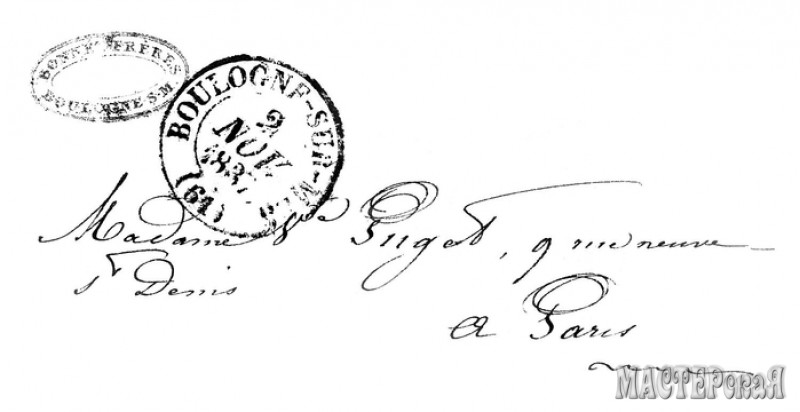 BONNE FRÈRES
BOULOGNE S.M.
BOULOGNE-SUR-MER
9
NOV
1837
(61)
Madame Vve Puget, 9 rue neuve
st Denis
a Paris
МАСТЕРскаЯ